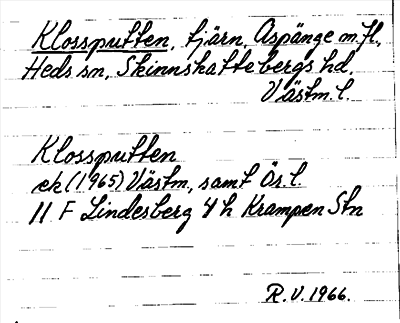 Klossputten, tjärn, Aspänge m.fl.,
Heds sn, Skinnskattebergs hd.
Västm. l.
Klossputten
ek (1965) Västm, samt Ös. l.
11 F Lindesberg 4 h Krampen Stn
R.V. 1966.